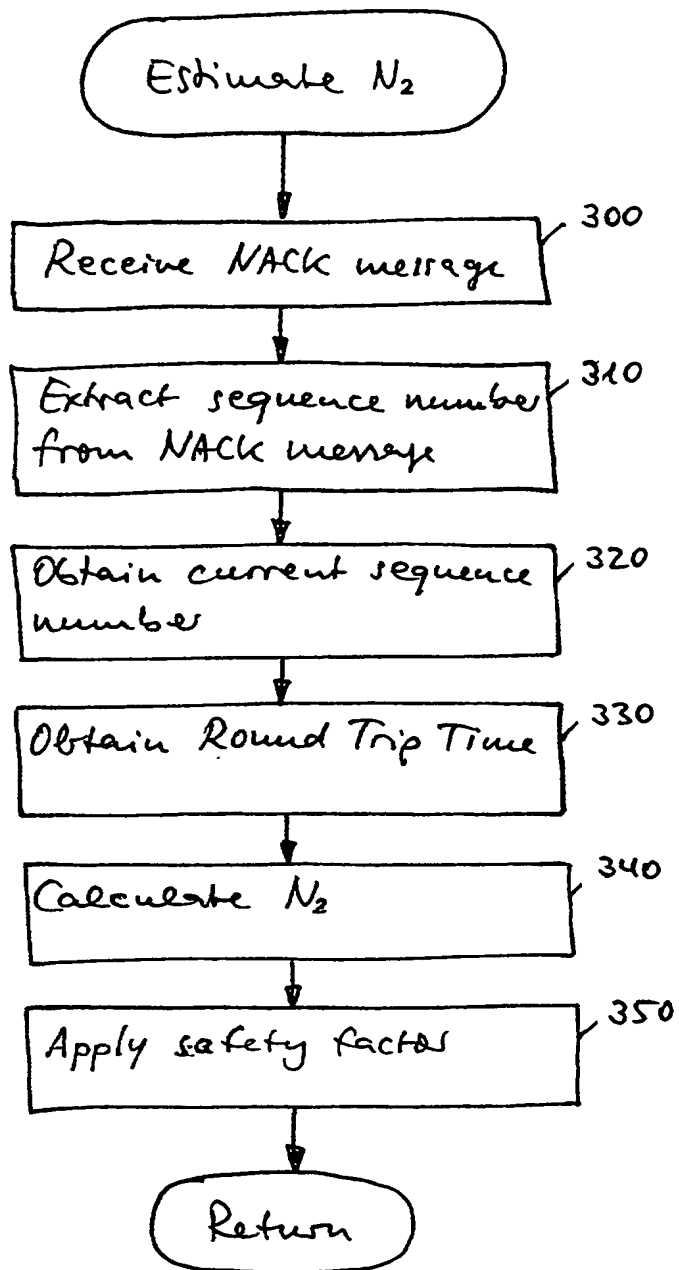 Estimate N₂
300
Receive NACK message
310
Extract sequence number
from NACK message
320
Obtain current sequence
number
330
Obtain Round Trip Time
340
Calculate N₂
350
Apply safety factor
Return